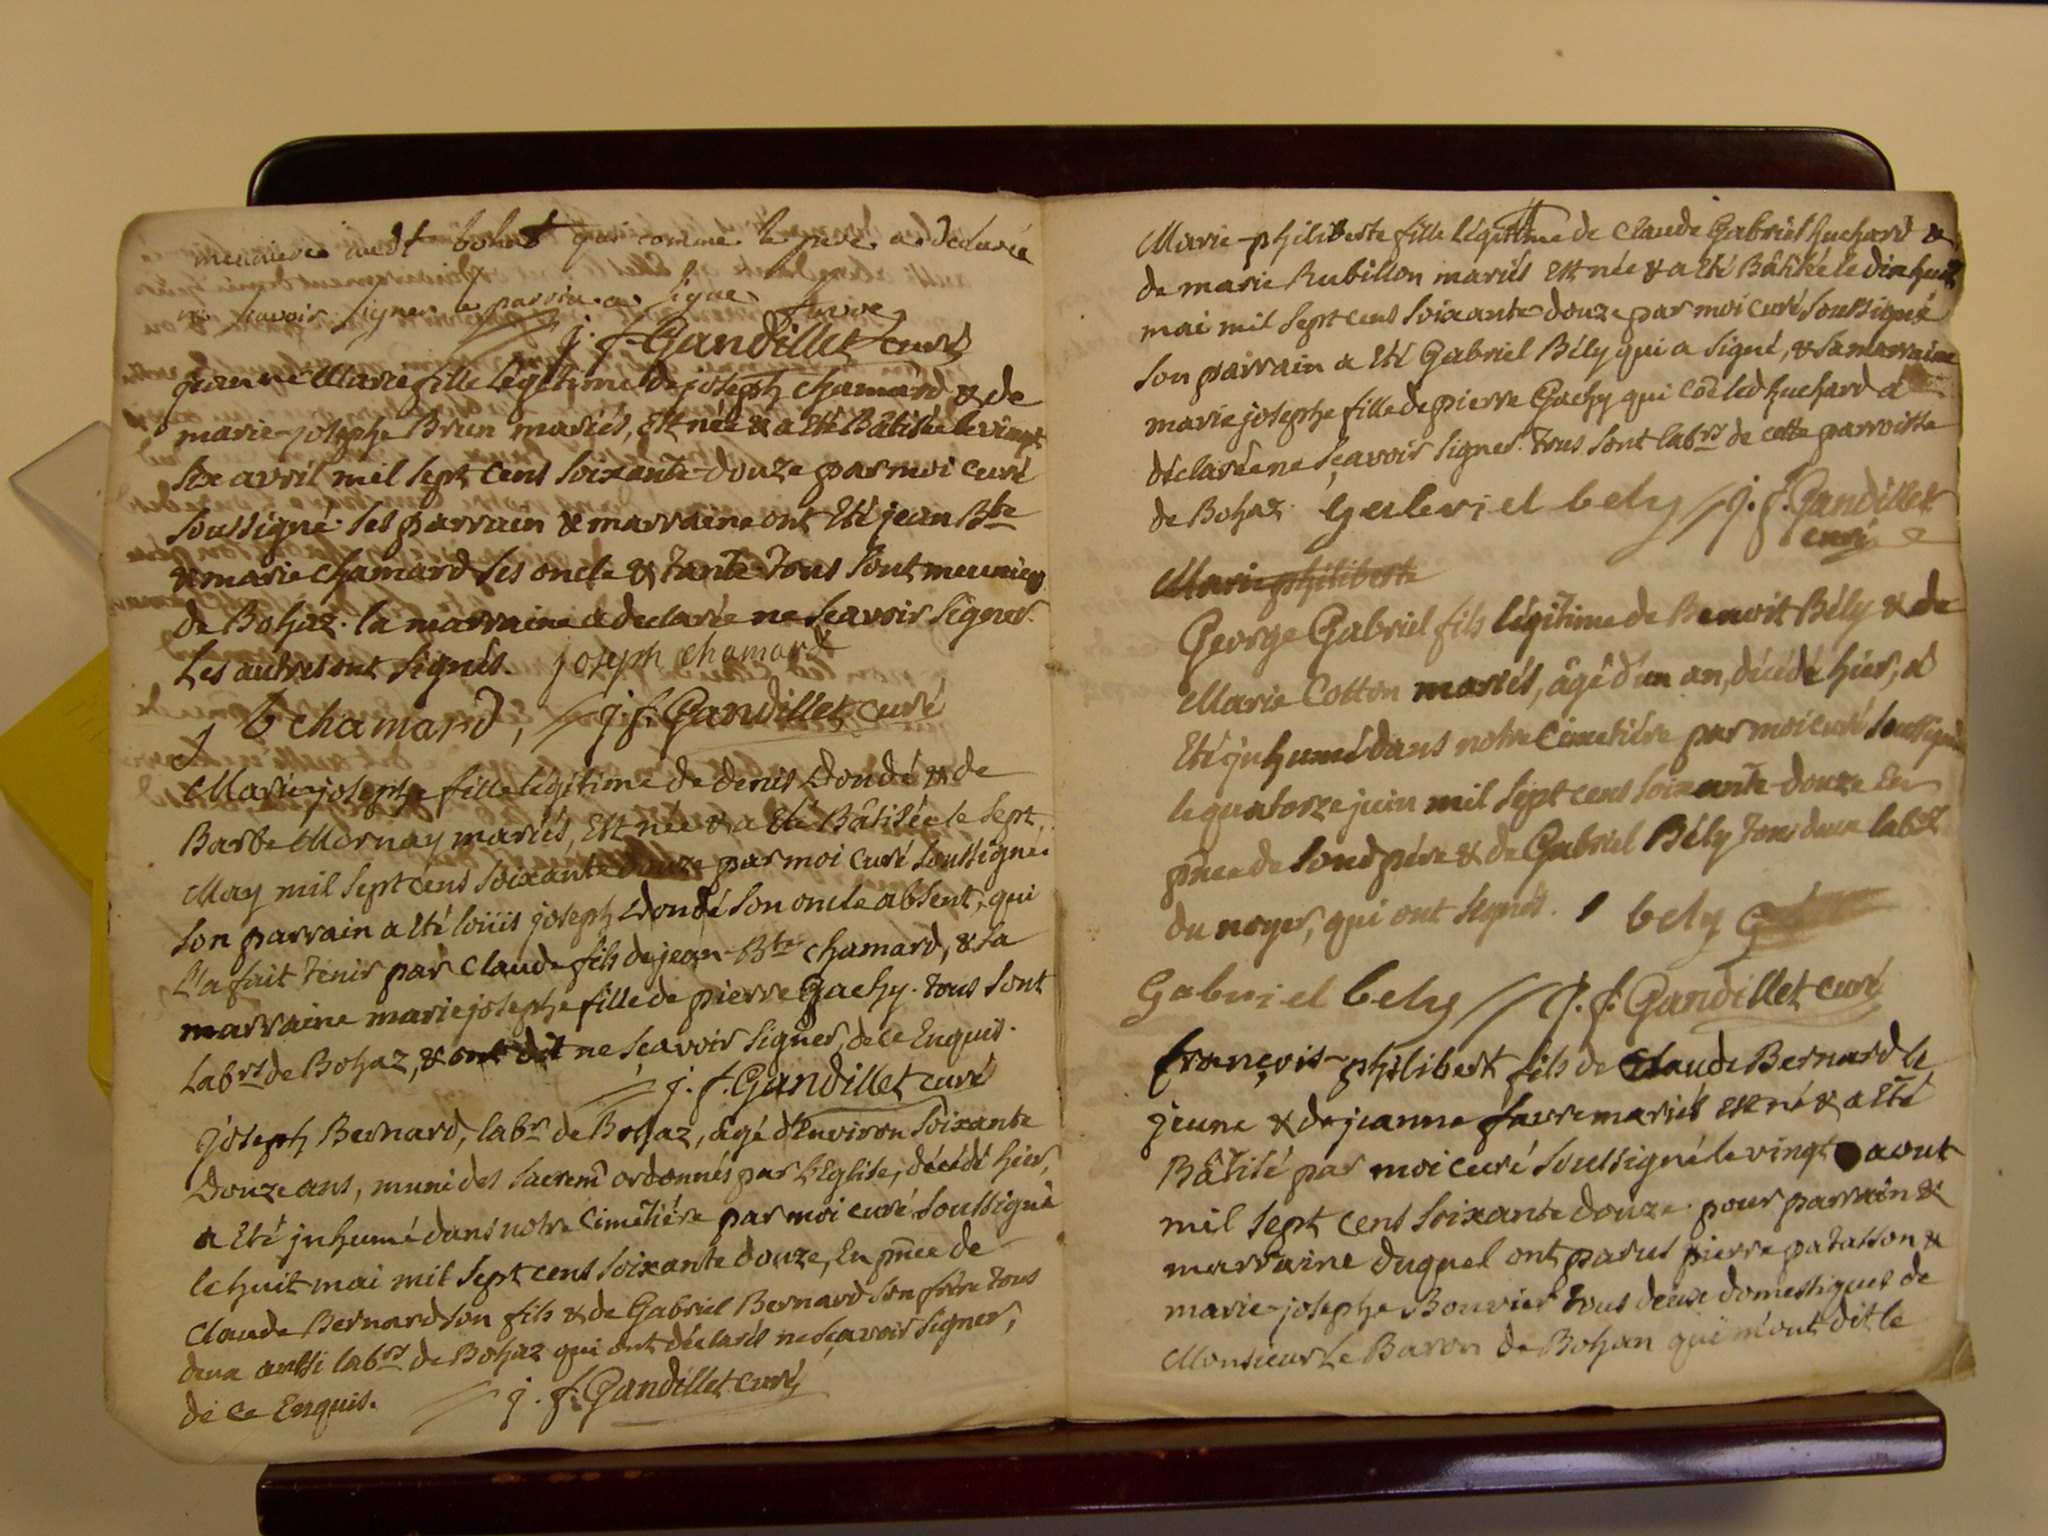 audt bohat qui comme le pere a declarée
ne scavoir signer le parrin a signe favre
j. f. Gandillet curé
jeanne Marie fille légitime de joseph chamard & de
marie-josephe Brun mariés, Est née & a Eté Bâtisée le vingt
six avril mil sept cens soixante-douze par moi curé
soussigné. ses parrain & marraine ont Eté jean Bte
& marie chamard ses oncle & tante tous sont meuniers
de Bohaz. la marraine a declarée ne sçavoir signer.
Les autres ont signés. joseph chamard
j b chamard, j. f. Gandillet curé
Marie-josephe fille légitime de denis Dondé & de
Barbe Mornay mariés, Est née & a Eté Bâtisée le sept
May mil sept cens soixante douze par moi curé soussigné.
son parrain a Eté loüis joseph Dondé son oncle absent, qui
l'a fait tenir par claude fils de jean-Bte chamard, & sa
marraine marie josephe fille de pierre Gachy. tous sont
labrs de Bohaz, & ont dit ne sçavoir signer, de ce Enquis.
j. f. Gandillet curé
joseph Bernard, labr de Bohaz, âgé d'Environ soixante
Douze ans, muni des sacremt ordonnés par l'Eglise, décédé hier,
a Eté jnhumé dans notre Cimetiére par moi curé soussigné
le huit mai mil sept cens soixante douze, En pnce de
claude Bernard son fils & de Gabriel Bernard son frére tous
deux aussi labrs de Bohaz qui ont déclarés ne sçavoir signer,
de ce Enquis. j. f. Gandillet curé
Marie-philiberte fille légitime de claude Gabriel huchard &
de marie Rubillon mariés Est née & a Eté Bâtisée le dix huit
mai mil sept cens soixante-douze par moi curé soussigné
son parrain a Eté Gabriel Bély qui a signé, & sa marraine
marie josephe fille de pierre Gachy qui coe led huchard a
déclarée ne sçavoir signer. tous sont labrs de cette parroisse
de Bohaz. gabriel bely j. f. Gandillet
curé
Marie philiberte
George Gabriel fils légitime de Benoit Bély & de
Marie Cotton mariés, âgé d'un an, décédé hier, a
Eté jnhumé dans notre Cimetiére par moi curé soussigné
le quatorze juin mil sept cens soixante-douze En
pnce de sond pére & de Gabriel Bély tous deux labrs
du noyer, qui ont signés. bely
Gabriel bely j. f. Gandillet curé
françois-philibert fils de Claude Bernard le
jeune & de jeanne favre mariés Est né & a Eté
Bâtisé par moi curé soussigné le vingt aout
mil sept cens soixante douze. pour parrain &
marraine duquel ont parus pierre patasson &
marie-josephe Bouvier tous deux domestiques de
Monsieur Le Baron de Bohan qui m'ont dit le